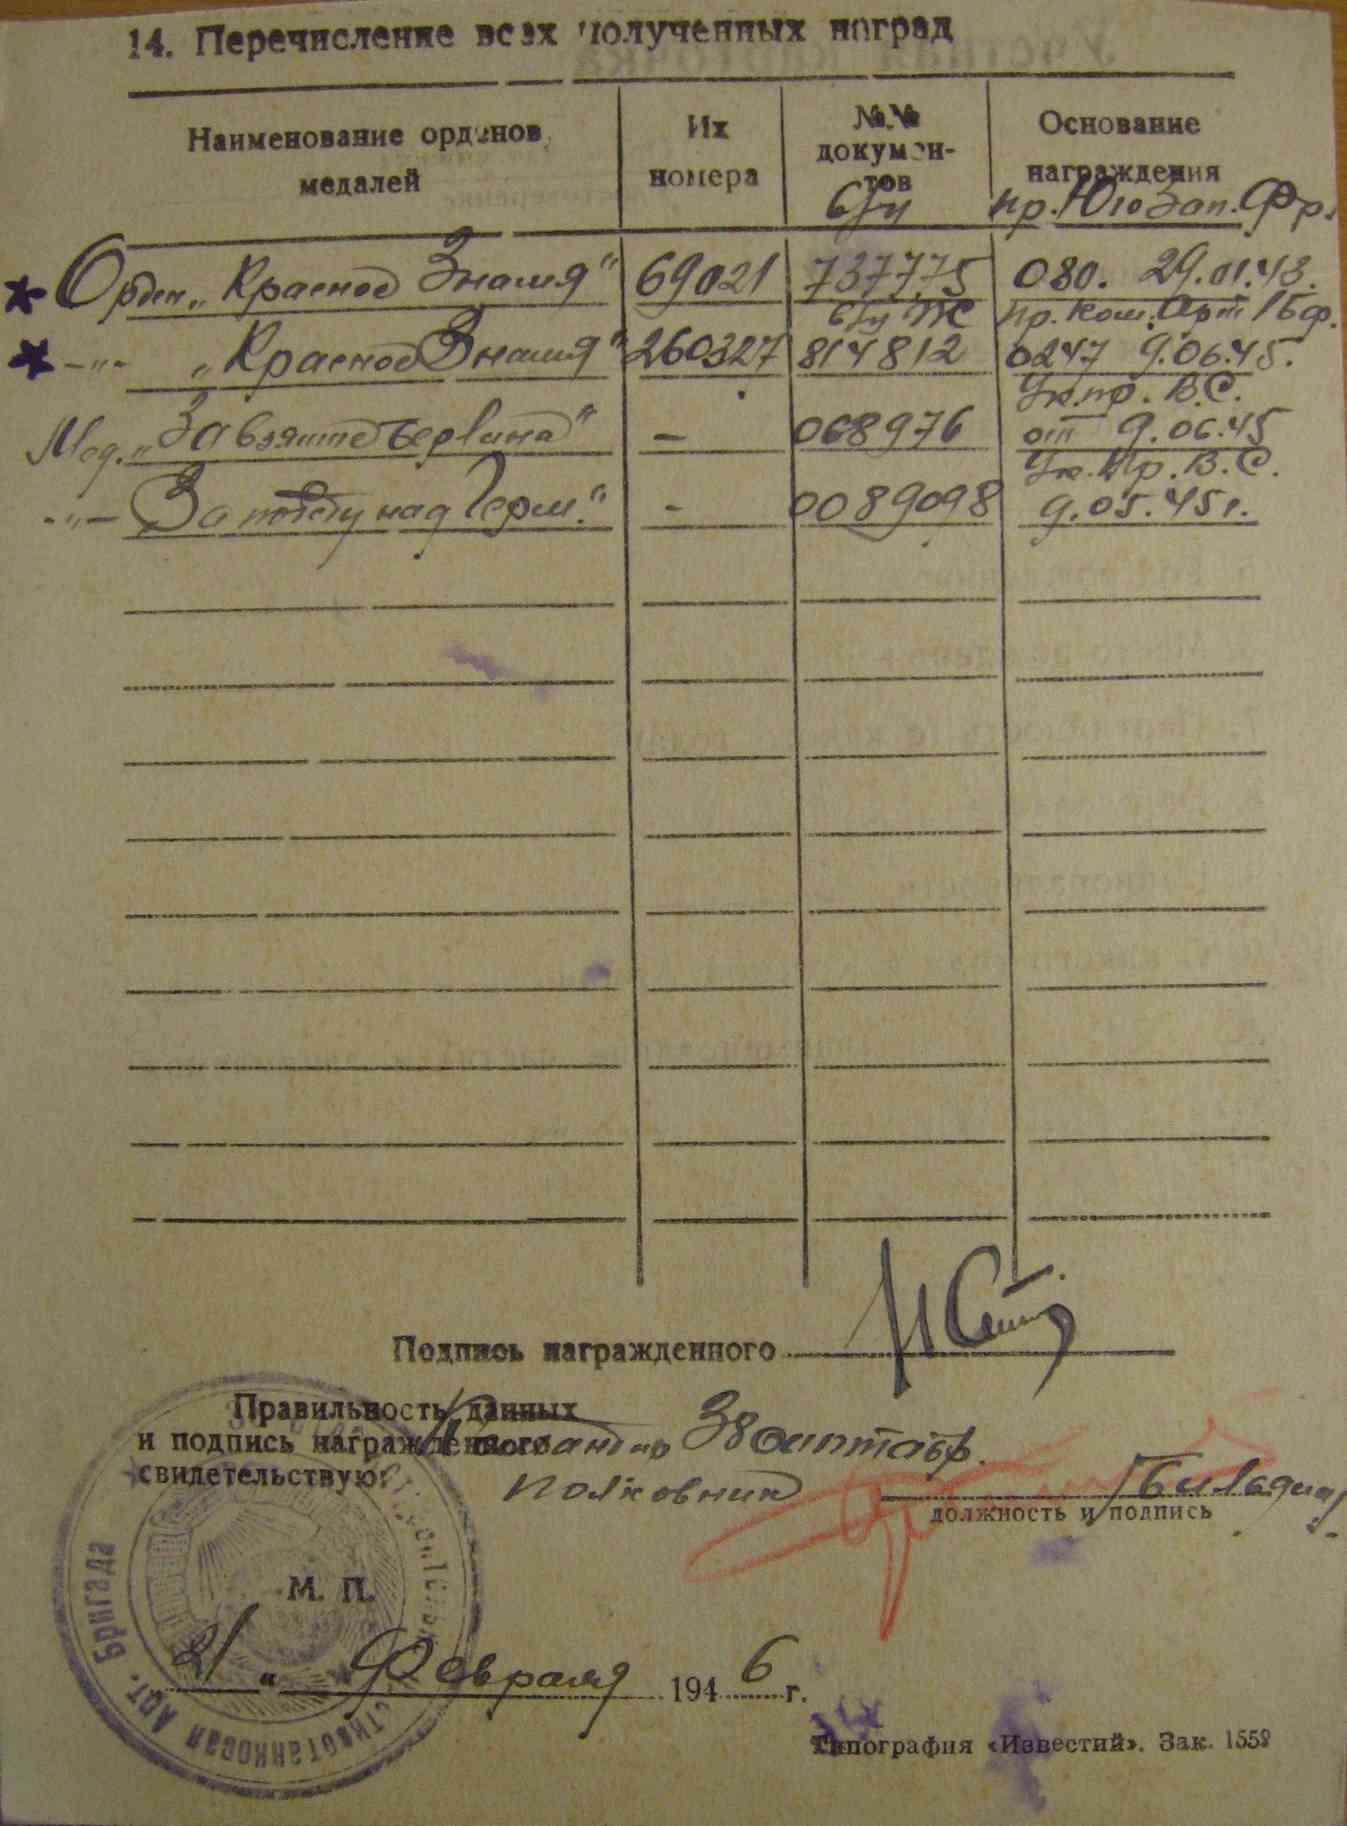 14. Перечисление всех полученных наград
Наименование орденов, медалей
Их номера
№№ документов
Основание награждения
б/н пр. Юго Зап. Фр.
Орден „Красное Знамя" 69021 737775 080. 29.01.43.
пр. Ком. Арт 1 Бф.
-"- „Красное Знамя" 260327 814812 0247 9.06.45.
Ук. пр. В.С.
Мед. „За взятие Берлина" - 068976 от 9.06.45
Ук. Пр. В.С.
-"- „За победу над Герм." - 0089098 9.05.45г.
Подпись награжденного
Правильность данных
и подпись награжденного Командир
свидетельствую: Полковник
должность и подпись
М. П.
21 " Февраля 1946 г.
Арт. Бригада
Типография «Известий». Зак. 1559